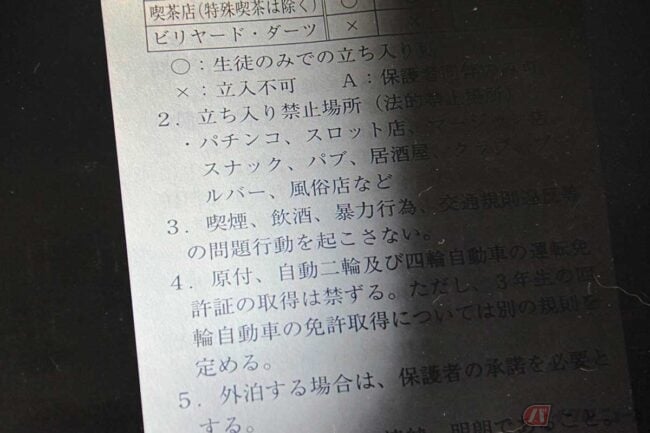 喫茶店(特殊喫茶は除く) ○
ビリヤード・ダーツ × ×
○:生徒のみでの立ち入り可
×:立入不可 A:保護者同伴のみ可
2.立ち入り禁止場所(法的禁止場所)
・パチンコ、スロット店、マージャン店、
スナック、パブ、居酒屋、
ルバー、風俗店など
3.喫煙、飲酒、暴力行為、交通規則違反等
の問題行動を起こさない。
4.原付、自動二輪及び四輪自動車の運転免
許証の取得は禁ずる。ただし、3年生の四
輪自動車の免許取得については別の規則を
定める。
5.外泊する場合は、保護者の承諾を必要と
する。
明朗であること。